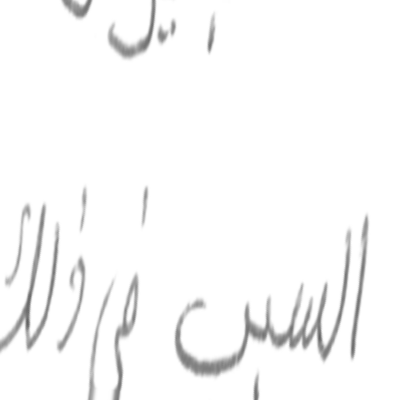 السبب في ذلك